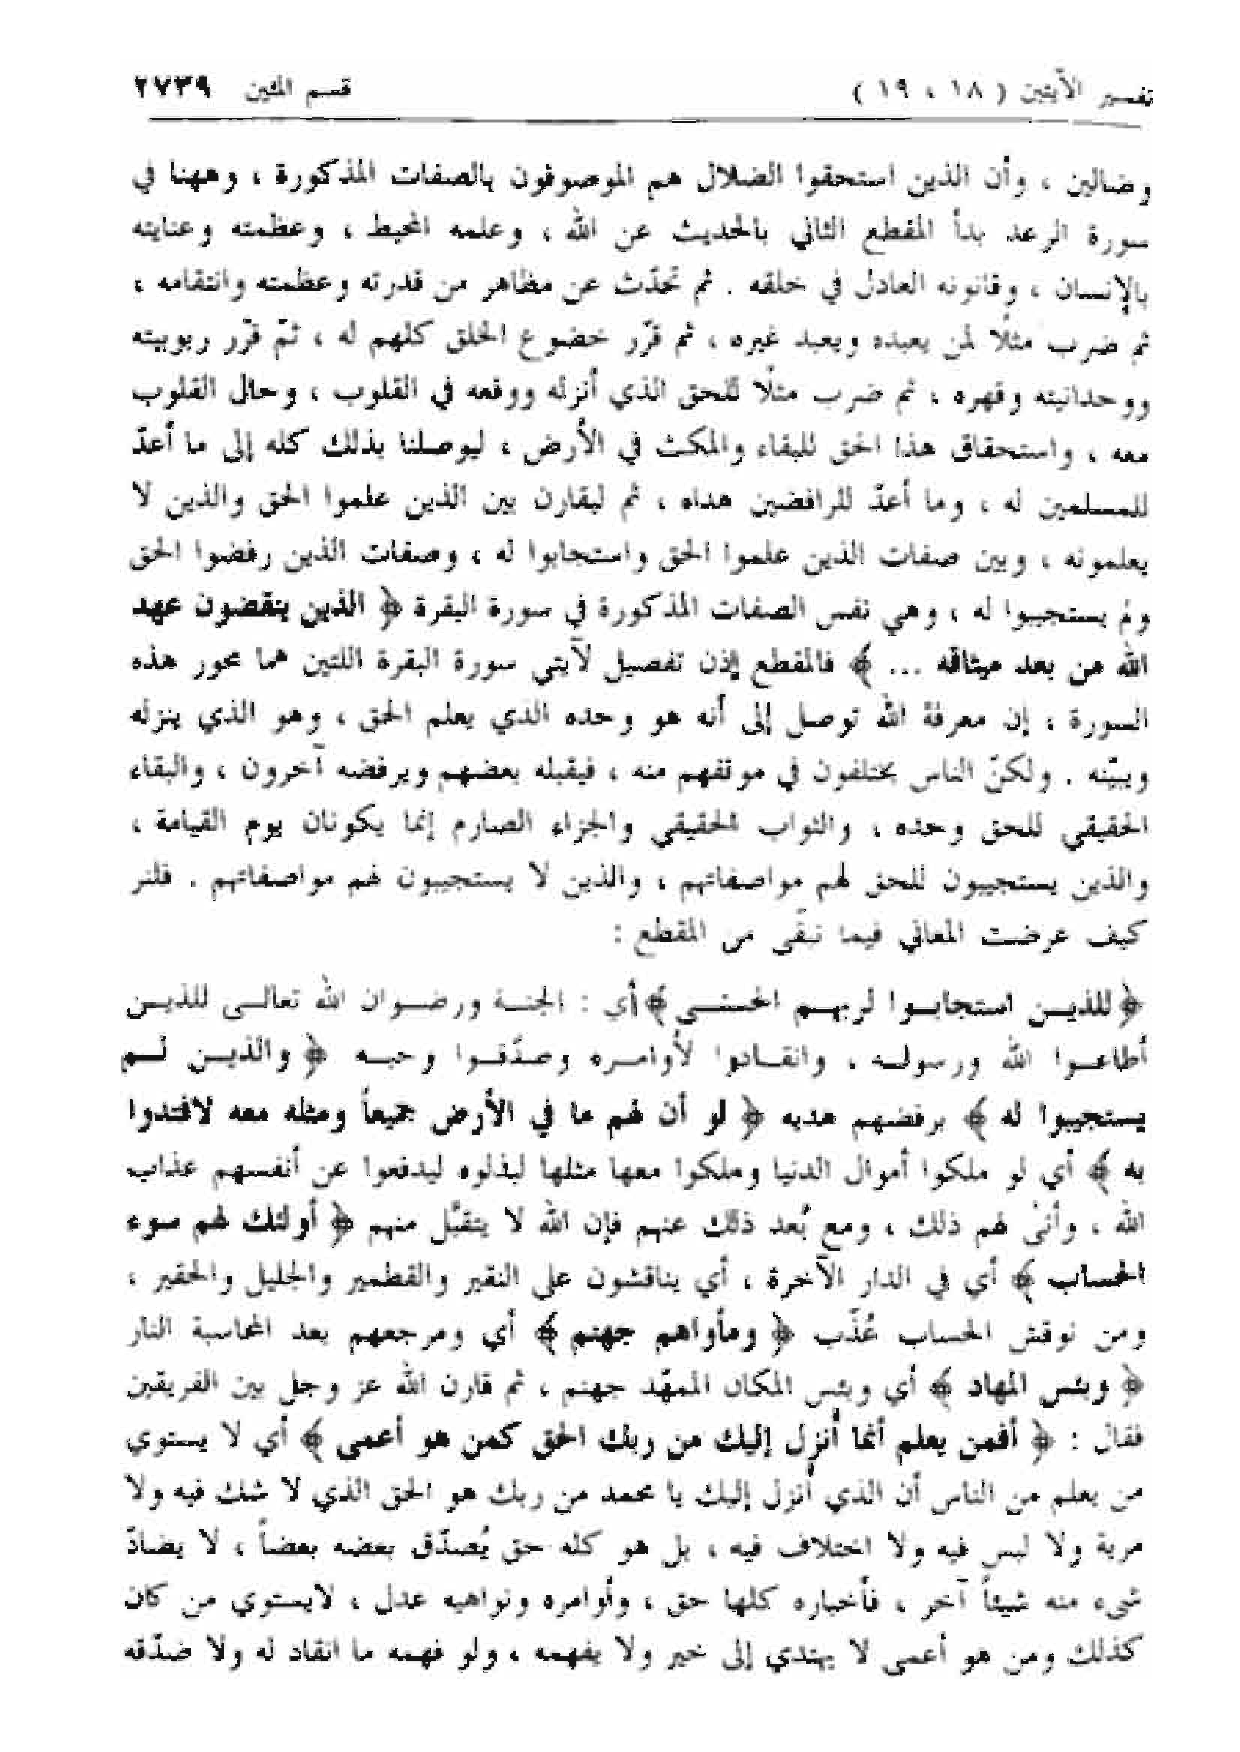 تفسير الآيتين ( ١٨ ، ١٩ ) قسم المئين ٢٧٣٩
وضالين ، وأن الذين استحقوا الضلال هم الموصوفون بالصفات المذكورة ، وههنا في
سورة الرعد بدأ المقطع الثاني بالحديث عن الله ، وعلمه المحيط ، وعظمته وعنايته
بالإنسان ، وقانونه العادل في خلقه . ثم تحدّث عن مظاهر من قدرته وعظمته وانتقامه ،
ثم ضرب مثلًا لمن يعبده ويعبد غيره ، ثم قرّر خضوع الخلق كلهم له ، ثمّ قرّر ربوبيته
ووحدانيته وقهره ، ثم ضرب مثلًا للحق الذي أنزله ووقعه في القلوب ، وحال القلوب
معه ، واستحقاق هذا الحق للبقاء والمكث في الأرض ، ليوصلنا بذلك كله إلى ما أعدّ
للمسلمين له ، وما أعدّ للرافضين هداه ، ثم ليقارن بين الذين علموا الحق والذين لا
يعلمونه ، وبين صفات الذين علموا الحق واستجابوا له ، وصفات الذين رفضوا الحق
ولم يستجيبوا له ، وهي نفس الصفات المذكورة في سورة البقرة ﴿ الذين ينقضون عهد
الله من بعد ميثاقه ... ﴾ فالمقطع إذن تفصيل لآيتي سورة البقرة اللتين هما محور هذه
السورة ، إن معرفة الله توصل إلى أنه هو وحده الذي يعلم الحق ، وهو الذي ينزله
ويبيّنه . ولكنّ الناس يختلفون في موقفهم منه ، فيقبله بعضهم ويرفضه آخرون ، والبقاء
الحقيقي للحق وحده ، والثواب الحقيقي والجزاء الصارم إنما يكونان يوم القيامة ،
والذين يستجيبون للحق لهم مواصفاتهم ، والذين لا يستجيبون لهم مواصفاتهم . فلنر
كيف عرضت المعاني فيما تبقّى من المقطع :
﴿ للذيـن استجابـوا لربهـم الحسنـى ﴾ أي : الجنـة ورضـوان الله تعالـى للذيـن
أطاعـوا الله ورسولـه ، وانقـادوا لأوامـره وصدّقـوا وحيـه ﴿ والذيـن لـم
يستجيبوا له ﴾ برفضهم هديه ﴿ لو أن لهم ما في الأرض جميعاً ومثله معه لافتدوا
به ﴾ أي لو ملكوا أموال الدنيا وملكوا معها مثلها لبذلوه ليدفعوا عن أنفسهم عذاب
الله ، وأنّى لهم ذلك ، ومع بُعد ذلك عنهم فإن الله لا يتقبَّل منهم ﴿ أولئك لهم سوء
الحساب ﴾ أي في الدار الآخرة ، أي يناقشون على النقير والقطمير والجليل والحقير ،
ومن نوقش الحساب عُذّب ﴿ ومأواهم جهنم ﴾ أي ومرجعهم بعد المحاسبة النار
﴿ وبئس المهاد ﴾ أي وبئس المكان الممهّد جهنم ، ثم قارن الله عز وجل بين الفريقين
فقال : ﴿ أفمن يعلم أنما أُنزل إليك من ربك الحق كمن هو أعمى ﴾ أي لا يستوي
من يعلم من الناس أن الذي أُنزل إليك يا محمد من ربك هو الحق الذي لا شك فيه ولا
مرية ولا لبس فيه ولا اختلاف فيه ، بل هو كله حق يُصدّق بعضه بعضاً ، لا يضادّ
شيء منه شيئاً آخر ، فأخباره كلها حق ، وأوامره ونواهيه عدل ، لايستوي من كان
كذلك ومن هو أعمى لا يهتدي إلى خير ولا يفهمه ، ولو فهمه ما انقاد له ولا صدّقه